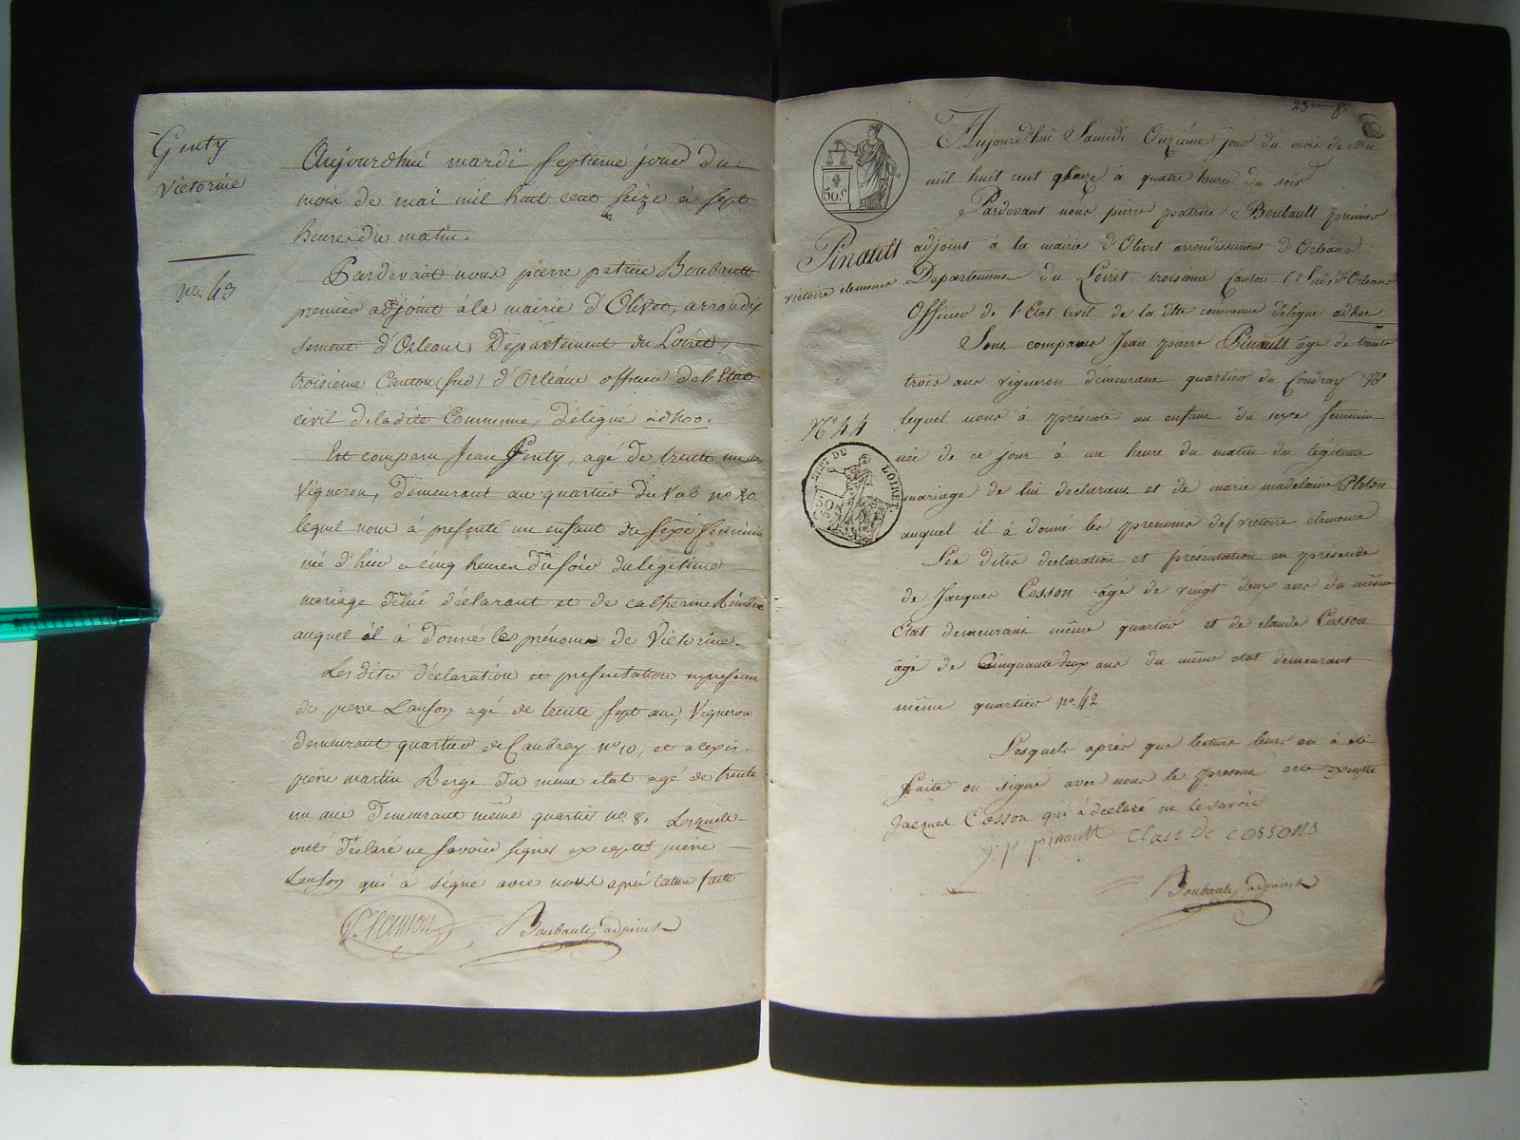 Genty
Victorine
no. 43
Aujourd'hui mardi septieme jour du
mois de mai mil huit cent seize à sept
heures du matin.
Pardevant nous pierre patrice Boubault
premier adjoint à la mairie d'Olivet, arrondis
sement d'Orleans, Département du Loiret,
troisieme Canton (sud) d'Orléans officier de l'Etat
civil de la dite Commune, délégué adhoc.
Est comparu Jean Genty, agé de trente
Vigneron, demeurant au quartier du Val no
lequel nous à presenté un enfant du sexe feminin
né d'hier a cinq heures du soir du légitime
mariage de lui déclarant et de catherine
auquel il à donné les prénoms de Victorine.
Les dites déclaration et presentation
de pierre agé de trente sept ans, Vigneron
demeurant quartier de no 10, et
pierre martin Berge du meme etat agé de trente
un ans demeurant même quartier no. 8. Lesquels
ont déclaré ne savoir signer excepté pierre
qui à signé avec nous après lecture faite
Boubault, adjoint
23 8
50 C
Pinault
victoire clemence
No 44
DEPT DU LOIRET.
Aujourd'hui Samedi Onzieme jour du mois de mai
mil huit cent à quatre heures du soir
Pardevant nous pierre patrice Boubault premier
adjoint à la mairie d'Olivet arrondissement d'Orleans
Departement du Loiret troisieme Canton d'Orleans
Officier de l'Etat Civil de la dite commune délégué adhoc
comparus Jean pierre Pinault âgé de trente
trois ans vigneron demeurant quartier du Coudray
lequel nous à présenté un enfant du sexe feminin
née de ce jour à un heure du matin du légitime
mariage de lui declarant et de marie madelaine
auquel il à donné les prenoms de victoire clemence
Les dites declaration et présentation en présence
de Jacques Cosson âgé de vingt deux ans du même
Etat demeurant même quartier et de claude Cosson
âgé de Cinquante deux ans du même etat demeurant
même quartier no. 42
Lesquels après que lecture leur en à été
faite on signé avec nous le present acte excepté
Jacques Cosson qui à declaré ne le savoir
j p pinault
Boubault, adjoint